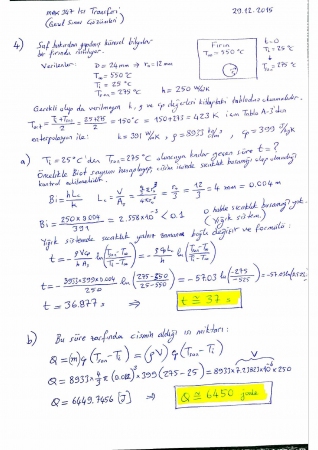 MAK 347 Isı Transferi
(Genel Sınav Çözümleri)
29.12.2015
4) Saf bakırdan yapılmış küresel bilyeler
bir fırında ısıtılıyor.
Verilenler: D = 24mm → r₀ = 12mm
T∞ = 550°C
Ti = 25°C
Tson = 275°C h = 250 W/m²K
Fırın
T∞ = 550°C
t=0
Ti = 25°C
t
Tson = 275°C
Gerekli olup da verilmeyen k, ρ ve cp değerleri kitaptaki tablodan alınmalıdır.
Tort = (Ti+Tson)/2 = (25+275)/2 = 150°C = 150+273 = 423 K için Tablo A-3'den
enterpolasyon ile: k = 391 W/mK, ρ = 8933 kg/m³, cp = 399 J/kgK
a) Ti = 25°C'den Tson = 275°C olmasına kadar geçen süre t = ?
Öncelikle Biot sayısını hesaplayıp, cisim içinde sıcaklık dağılışı olup olmadığı
kontrol edilmelidir.
Bi = hLc/k Lc = V/As = (4/3)πr₀³/4πr₀² = r₀/3 = 12/3 = 4 mm = 0.004 m
Bi = 250×0.004/391 = 2.558×10⁻³ < 0.1 O halde sıcaklık dağılışı yok.
(Yığık sistem.)
Yığık sistemde sıcaklık yalnız zamana bağlı değişir ve formülü:
t = -ρVcp/hAs ln((Tson-T∞)/(Ti-T∞)) = -ρcpLc/h ln((Tson-T∞)/(Ti-T∞))
t = -8933×399×0.004/250 ln((275-550)/(25-550)) = -57.03 ln(-275/-525)
t = 36.877 s ⇒ t ≅ 37 s
b) Bu süre zarfında cismin aldığı ısı miktarı:
Q = (m)cp(Tson-Ti) = (ρV)cp(Tson-Ti)
Q = 8933×4/3π(0.012)³×399(275-25) = 8933×7.2382×10⁻⁶×399×250
V
Q = 6449.7456 [J] ⇒ Q ≅ 6450 joule